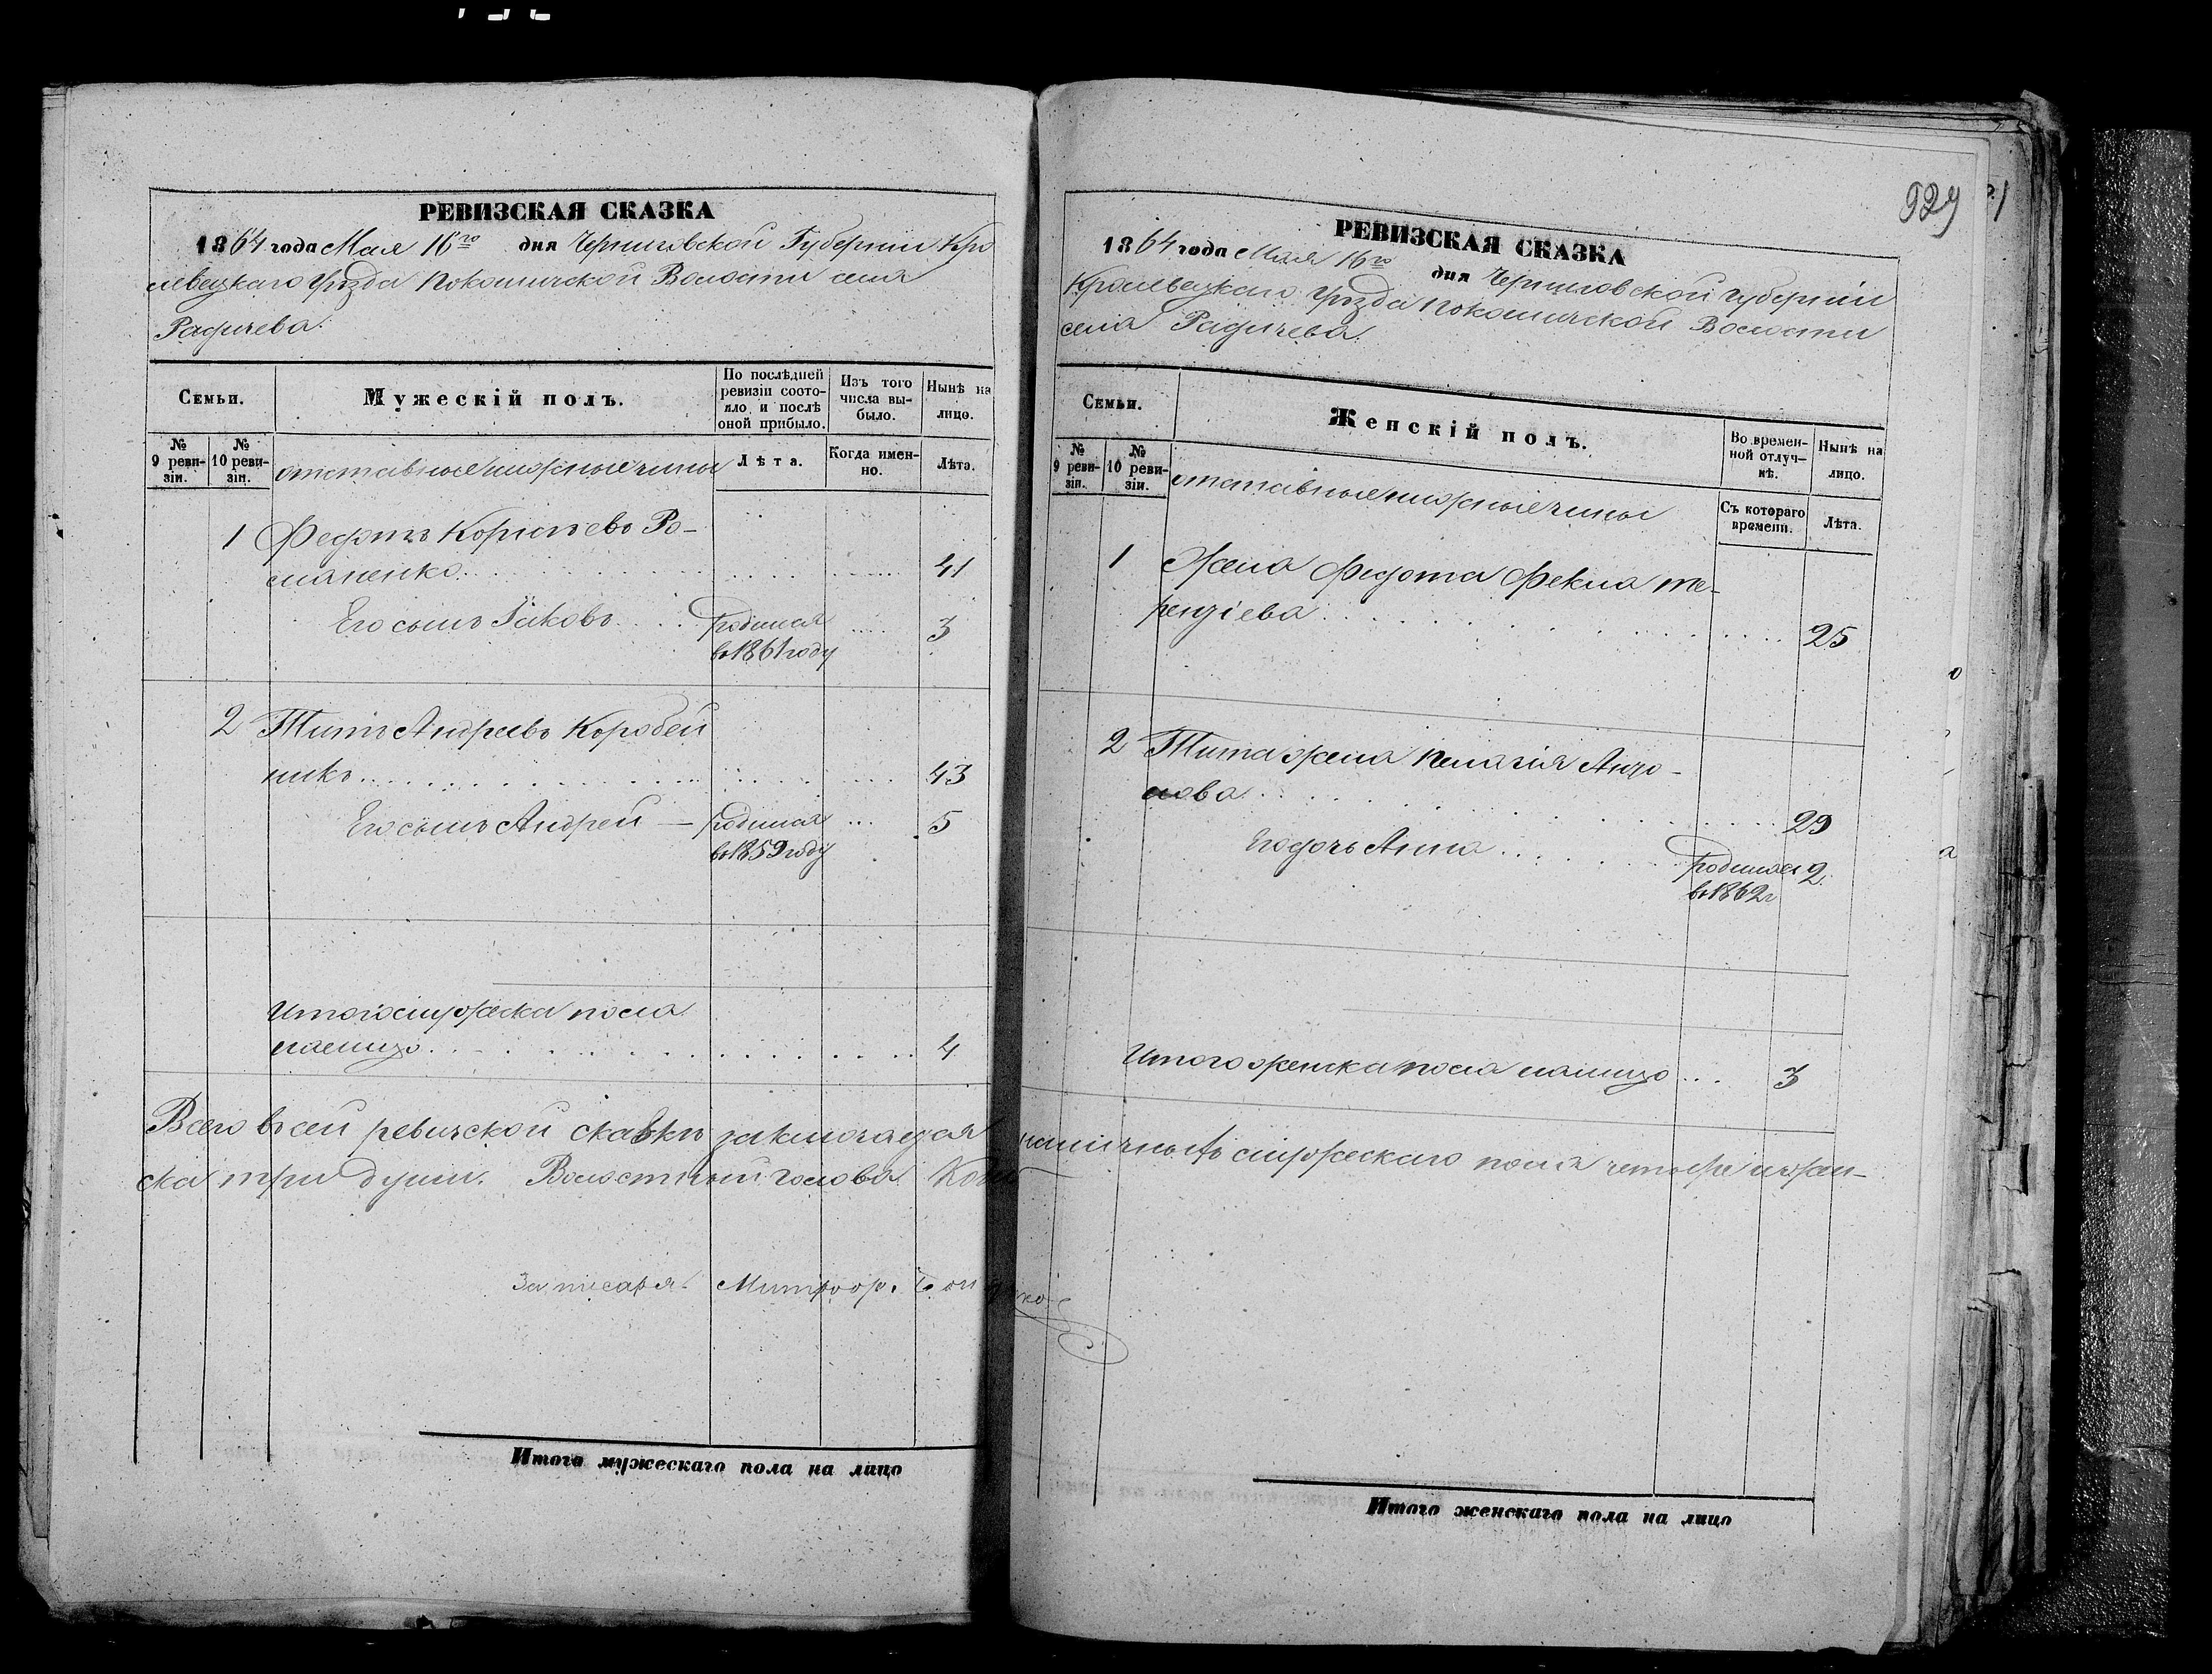 РЕВИЗСКАЯ СКАЗКА
1864 года Мая 16го дня Черниговской Губернии Кро
левецкаго Уезда Покошичской Волости села
Радичева.
Семьи.
Мужескій полъ.
По послѣдней
ревизіи состо-
яло и послѣ
оной прибыло.
Изъ того
числа вы-
было.
Нынѣ на
лицо.
№
9 реви-
зіи.
№
10 реви-
зіи.
отставные нижные чины
Лѣта.
Когда имен-
но.
Лѣта.
1 Федотъ Корнѣевъ Ро-
маненко 41
Его сынъ Іаковъ родился 3
въ 1861 году
2 Титъ Андреевъ Коробей
никъ 43
Его сынъ Андрей — родился 5
въ 1859 году
Итого мужеска пола
налицо 4
Всего въ сей ревизской сказкѣ заключается
ска три души. Волостный голова
За писаря Митроф.
Итого мужескаго пола на лицо
929
РЕВИЗСКАЯ СКАЗКА
1864 года Мая 16го дня Черниговской губерніи
Кролевецкаго Уезда Покошичской Волости
села Радичева.
Семьи.
Женскій полъ.
Во времен-
ной отлуч-
кѣ.
Нынѣ на
лицо.
№
9 реви-
зіи.
№
10 реви-
зіи.
отставные нижные чины
Съ котораго
времени.
Лѣта.
1 Жена Федота Фекла Те-
рентіева 25
2 Тита жена Пелагія Анто-
нова 29
Его дочь Анна родилась 2
въ 1862 г
Итого женска пола налицо 3
наличныхъ мужескаго пола четыре и жен-
Итого женскаго пола на лицо